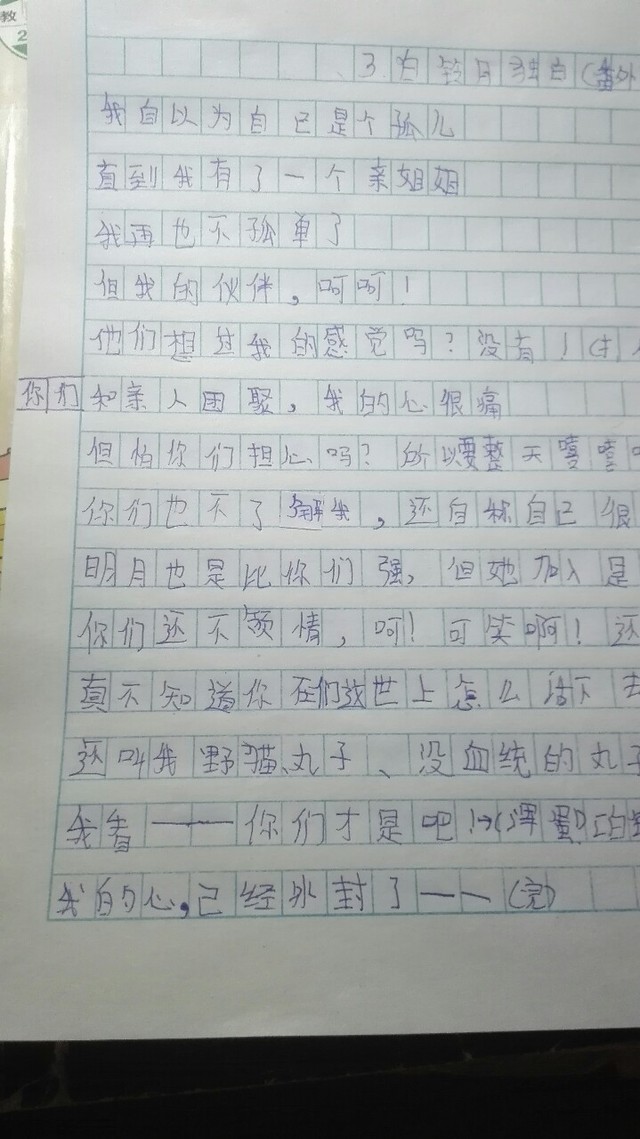 教
2
3 白铃月独白(番外
我自以为自己是个孤儿
直到我有了一个亲姐姐
我再也不孤单了
但我的伙伴，呵呵！
他们想过我的感觉吗？没有！(
你们和亲人团聚，我的心很痛
但怕你们担心吗？所以要整天嘻嘻
你们也不了解我，还自称自己很
明月也是比你们强，但她加入是
你们还不领情，呵！可笑啊！还
真不知道你在们这世上怎么活下去
还叫我野猫、丸子、没血统的丸子
我看——你们才是吧！→(
我的心，已经冰封了——(完)